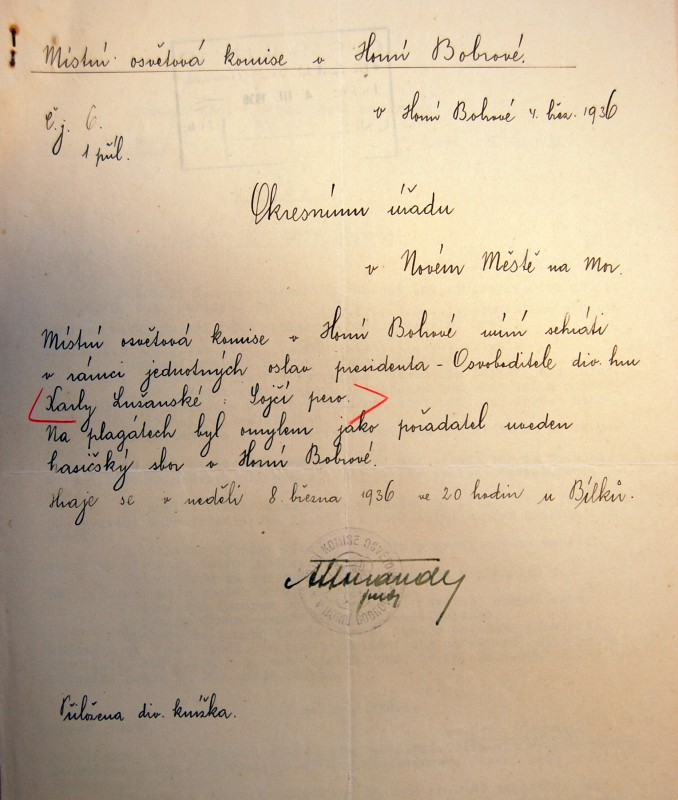 Místní osvětová komise v Horní Bobrové.
v Horní Bobrové 4. břez. 1936
Č. j. 6.
1 příl.
Okresnímu úřadu
v Novém Městě na Mor.
Místní osvětová komise v Horní Bobrové míní sehráti
v rámci jednotných oslav presidenta - Osvoboditele div. hru
Karly Lužanské : Sojčí pero.
Na plagátech byl omylem jako pořadatel uveden
hasičský sbor v Horní Bobrové.
Hraje se v neděli 8. března 1936 ve 20 hodin u Bílků.
KOMISE OSVĚTOVÁ
Přiložena div. knížka.